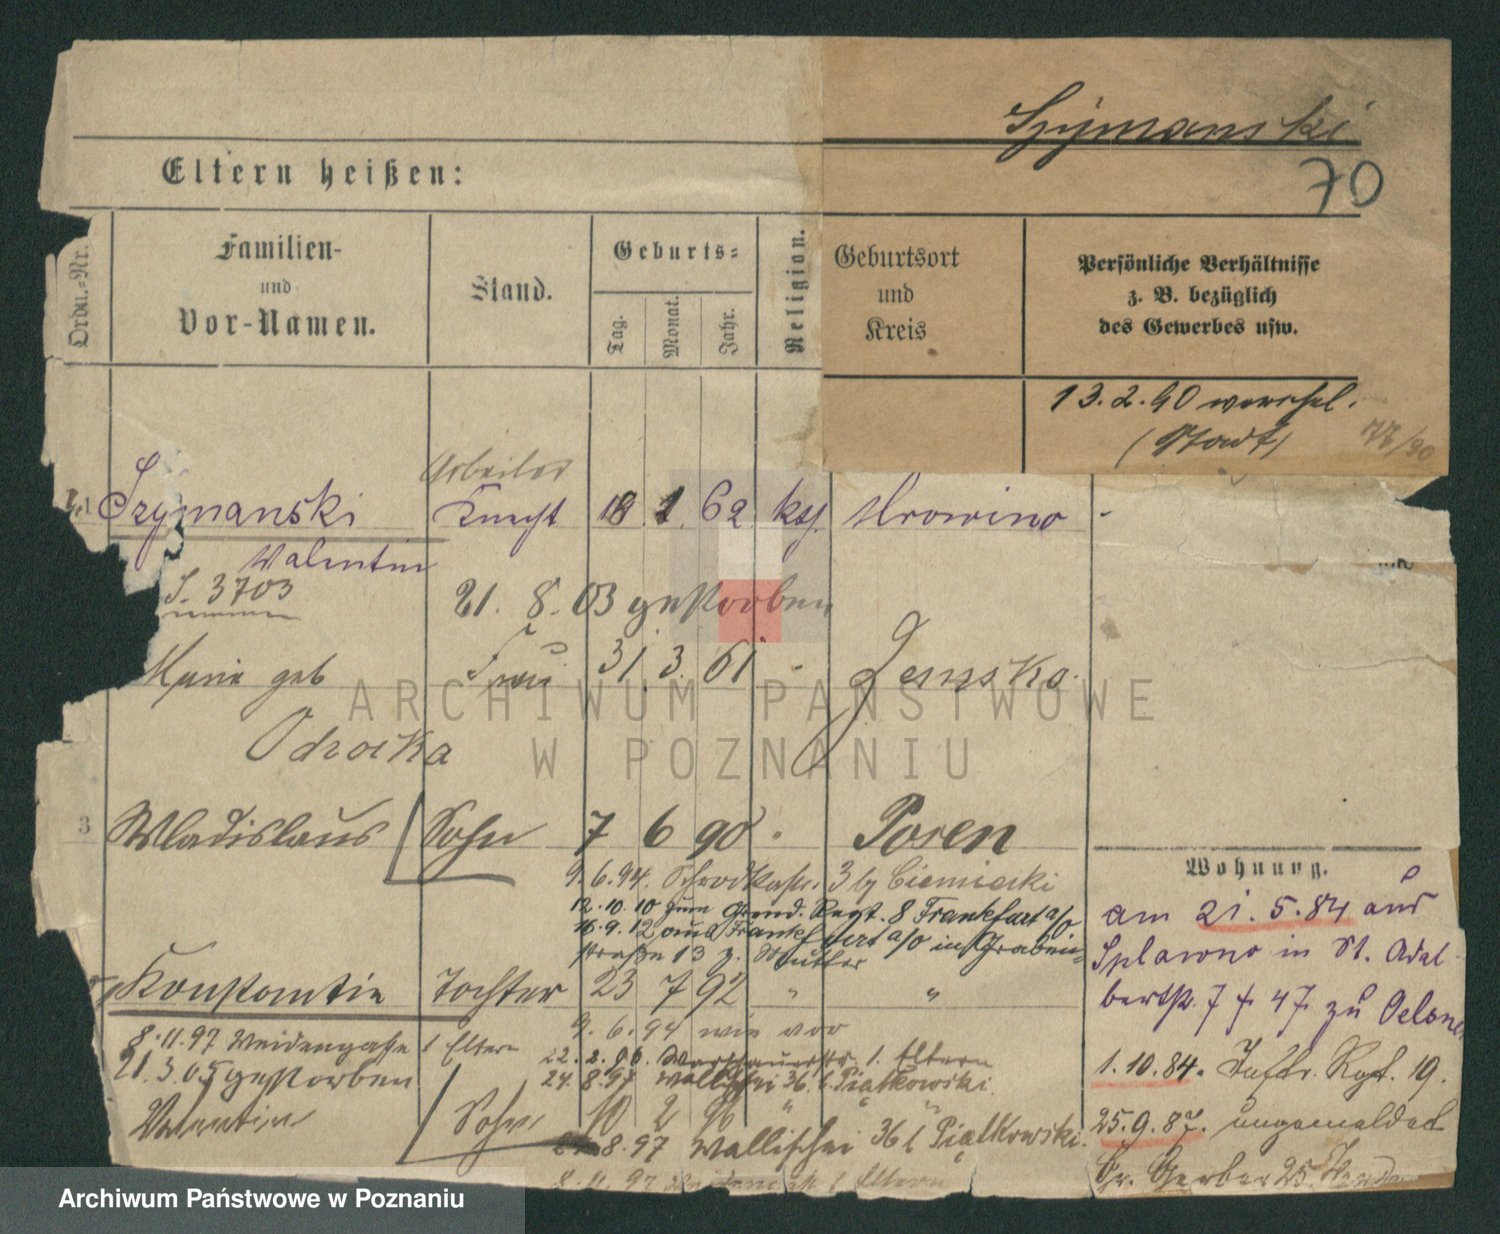 Szymanski
70
Eltern heißen:
Ordn.-Nr.
Familien-
und
Vor-Namen.
Stand.
Geburts-
Tag.
Monat.
Jahr.
Religion.
Geburtsort
und
Kreis
Persönliche Verhältnisse
z. B. bezüglich
des Gewerbes usw.
13.2.90
(Stadt)
Arbeiter
Szymanski Knecht 18 1. 62 kth. Mrowino
Valentin
S. 3703
21. 8. 03 gestorben
Marie geb Frau 31 3. 61 Zensko.
Odroika
ARCHIWUM PAŃSTWOWE
W POZNANIU
3 Wladislaus Sohn 7 6 90 Posen
9.6.94. Schrodkastr. 3 b/ Ciemiecki
12.10.10 zum Gren. Regt. 8 Frankfurt a/o
16.9.12 aus Frankfurt a/o in Graben=
straße 13 z. Mutter
Konstantia Tochter 23 7 92 " "
9. 6. 94 wie vor
8.11.97 Weidengasse 1 Eltern
22.2.96. Warschauerstr. 1. Eltern
21.3.05 gestorben
24.8.97 Wallischei 36 b. Piątkowski
Valentin Sohn 10 2 96 " " "
24.8.97 Wallischei 36 b Piątkowski.
8.11.97 1 Eltern
Wohnung.
am 21.5.84 aus
Splawno in St. Adal-
bertstr. 7 f. 47. zu Oelsner
1.10.84. Inftr. Rgt. 19.
25.9.87. ungemeldet
Gr. Gerber 25.
Archiwum Państwowe w Poznaniu